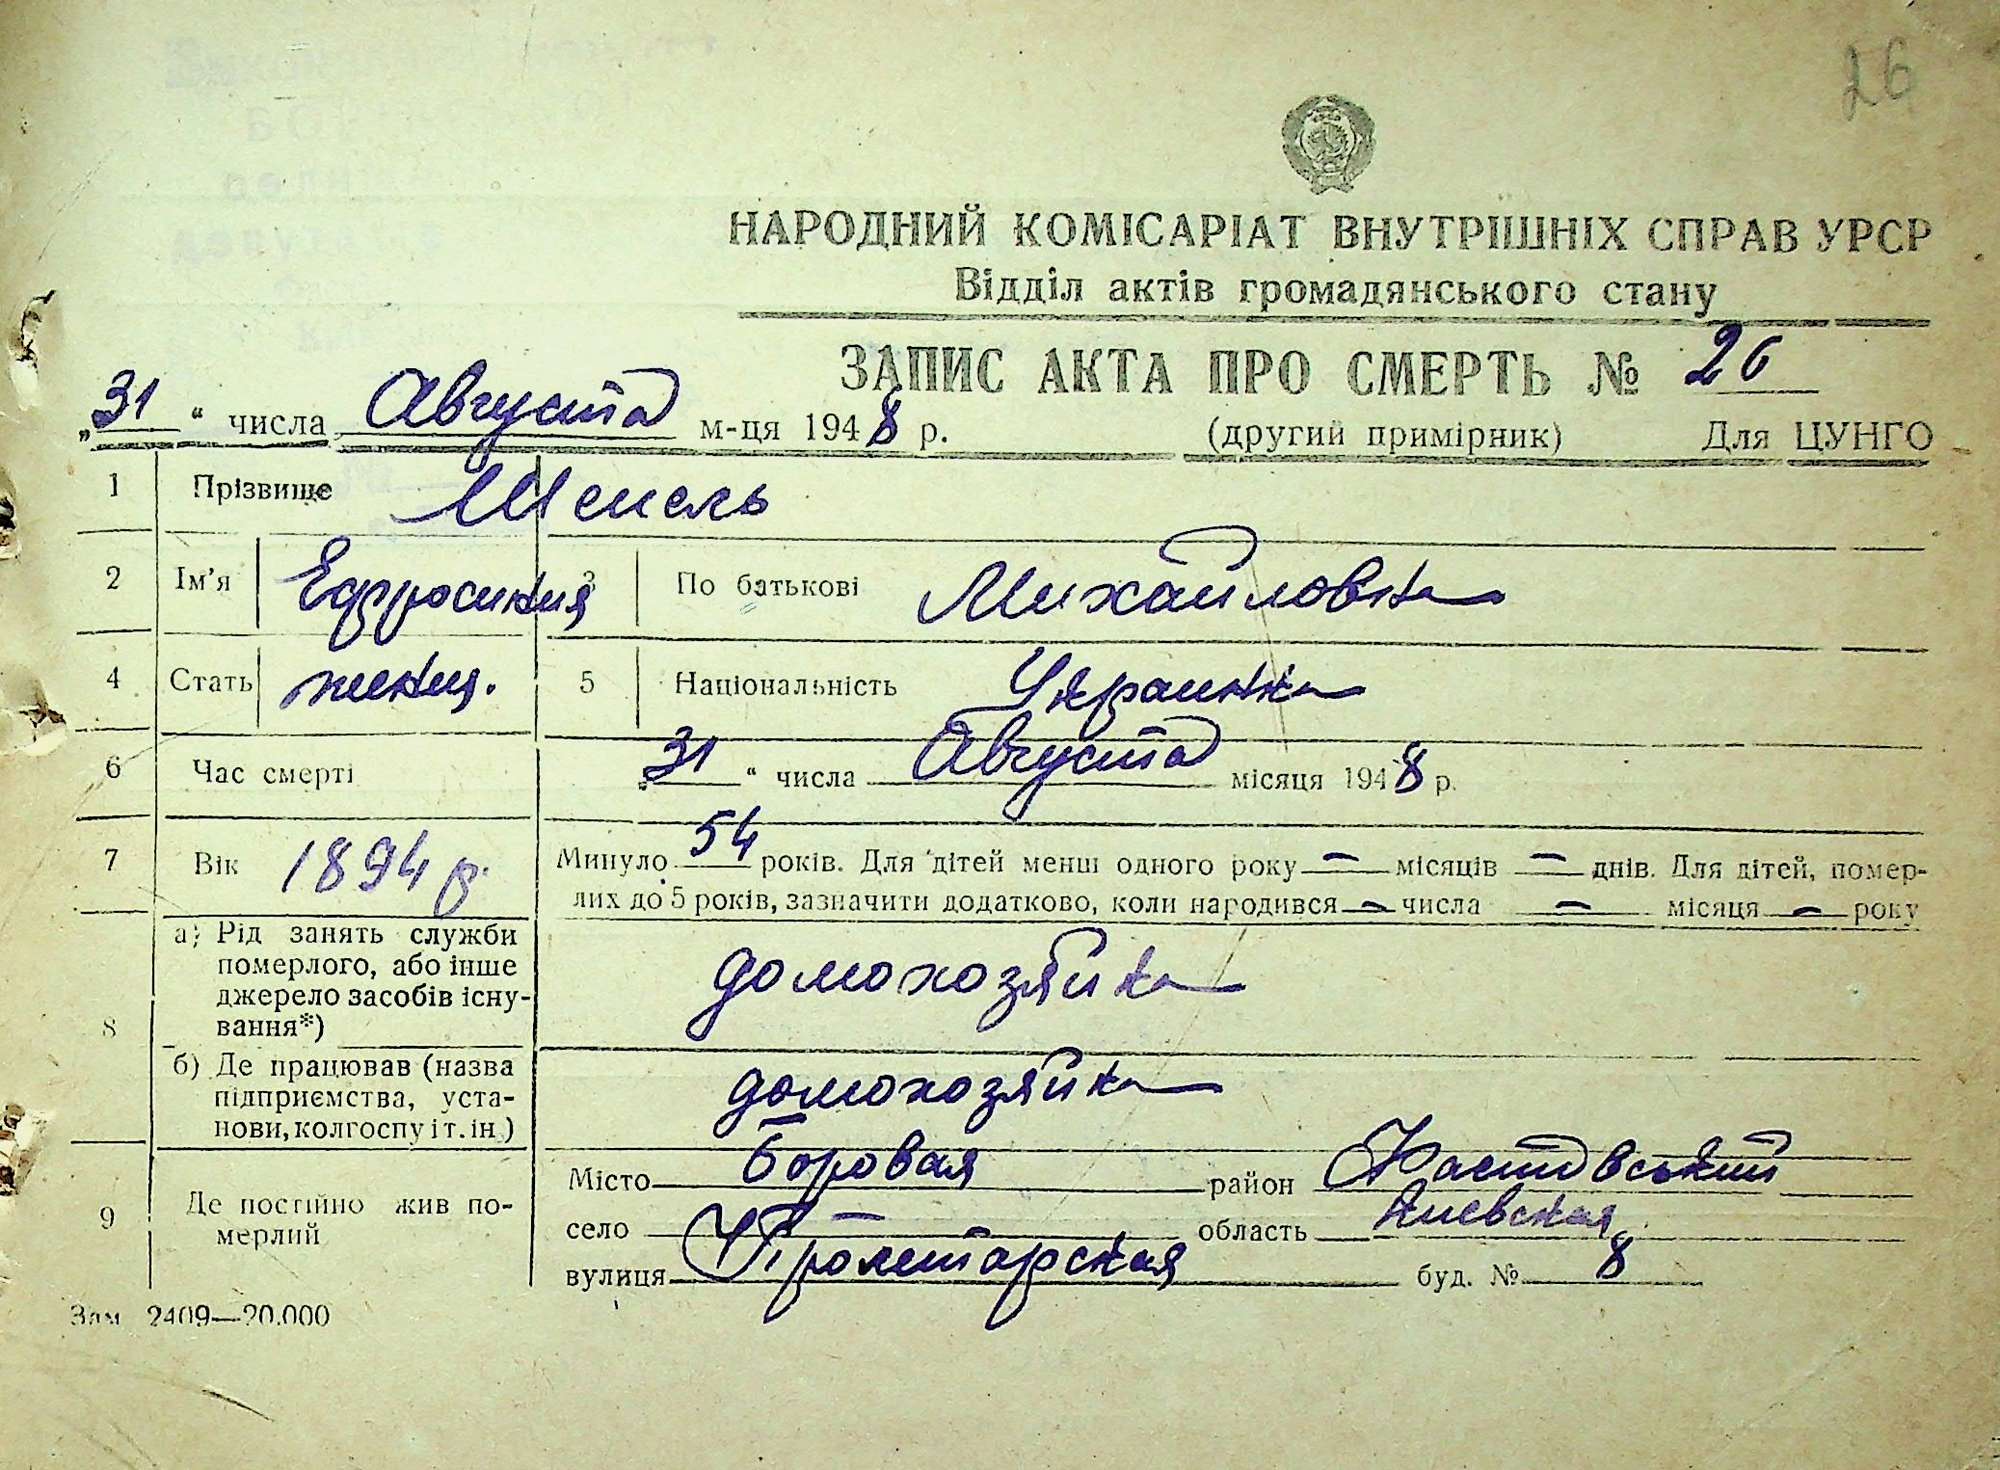 26
НАРОДНИЙ КОМІСАРІАТ ВНУТРІШНІХ СПРАВ УРСР
Відділ актів громадянського стану
ЗАПИС АКТА ПРО СМЕРТЬ № 26
„31“ числа Августа м-ця 1948 р. (другий примірник) Для ЦУНГО
1 Прізвище Шепель
2 Ім'я Ефросиния 3 По батькові Михайловна
4 Стать женщ. 5 Національність Украинка
6 Час смерті „31“ числа Августа місяця 1948 р.
7 Вік 1894 р. Минуло 54 років. Для дітей менш одного року — місяців — днів. Для дітей, помер-
лих до 5 років, зазначити додатково, коли народився — числа — місяця — року
8 а) Рід занять служби
померлого, або інше
джерело засобів існу-
вання*) домохозяйка
б) Де працював (назва
підприємства, уста-
нови, колгоспу і т. ін.) домохозяйка
9 Де постійно жив по-
мерлий
Місто Боровая район Фастовський
село — область Киевская
вулиця Пролетарская буд. № 8
Зам. 2409—20.000